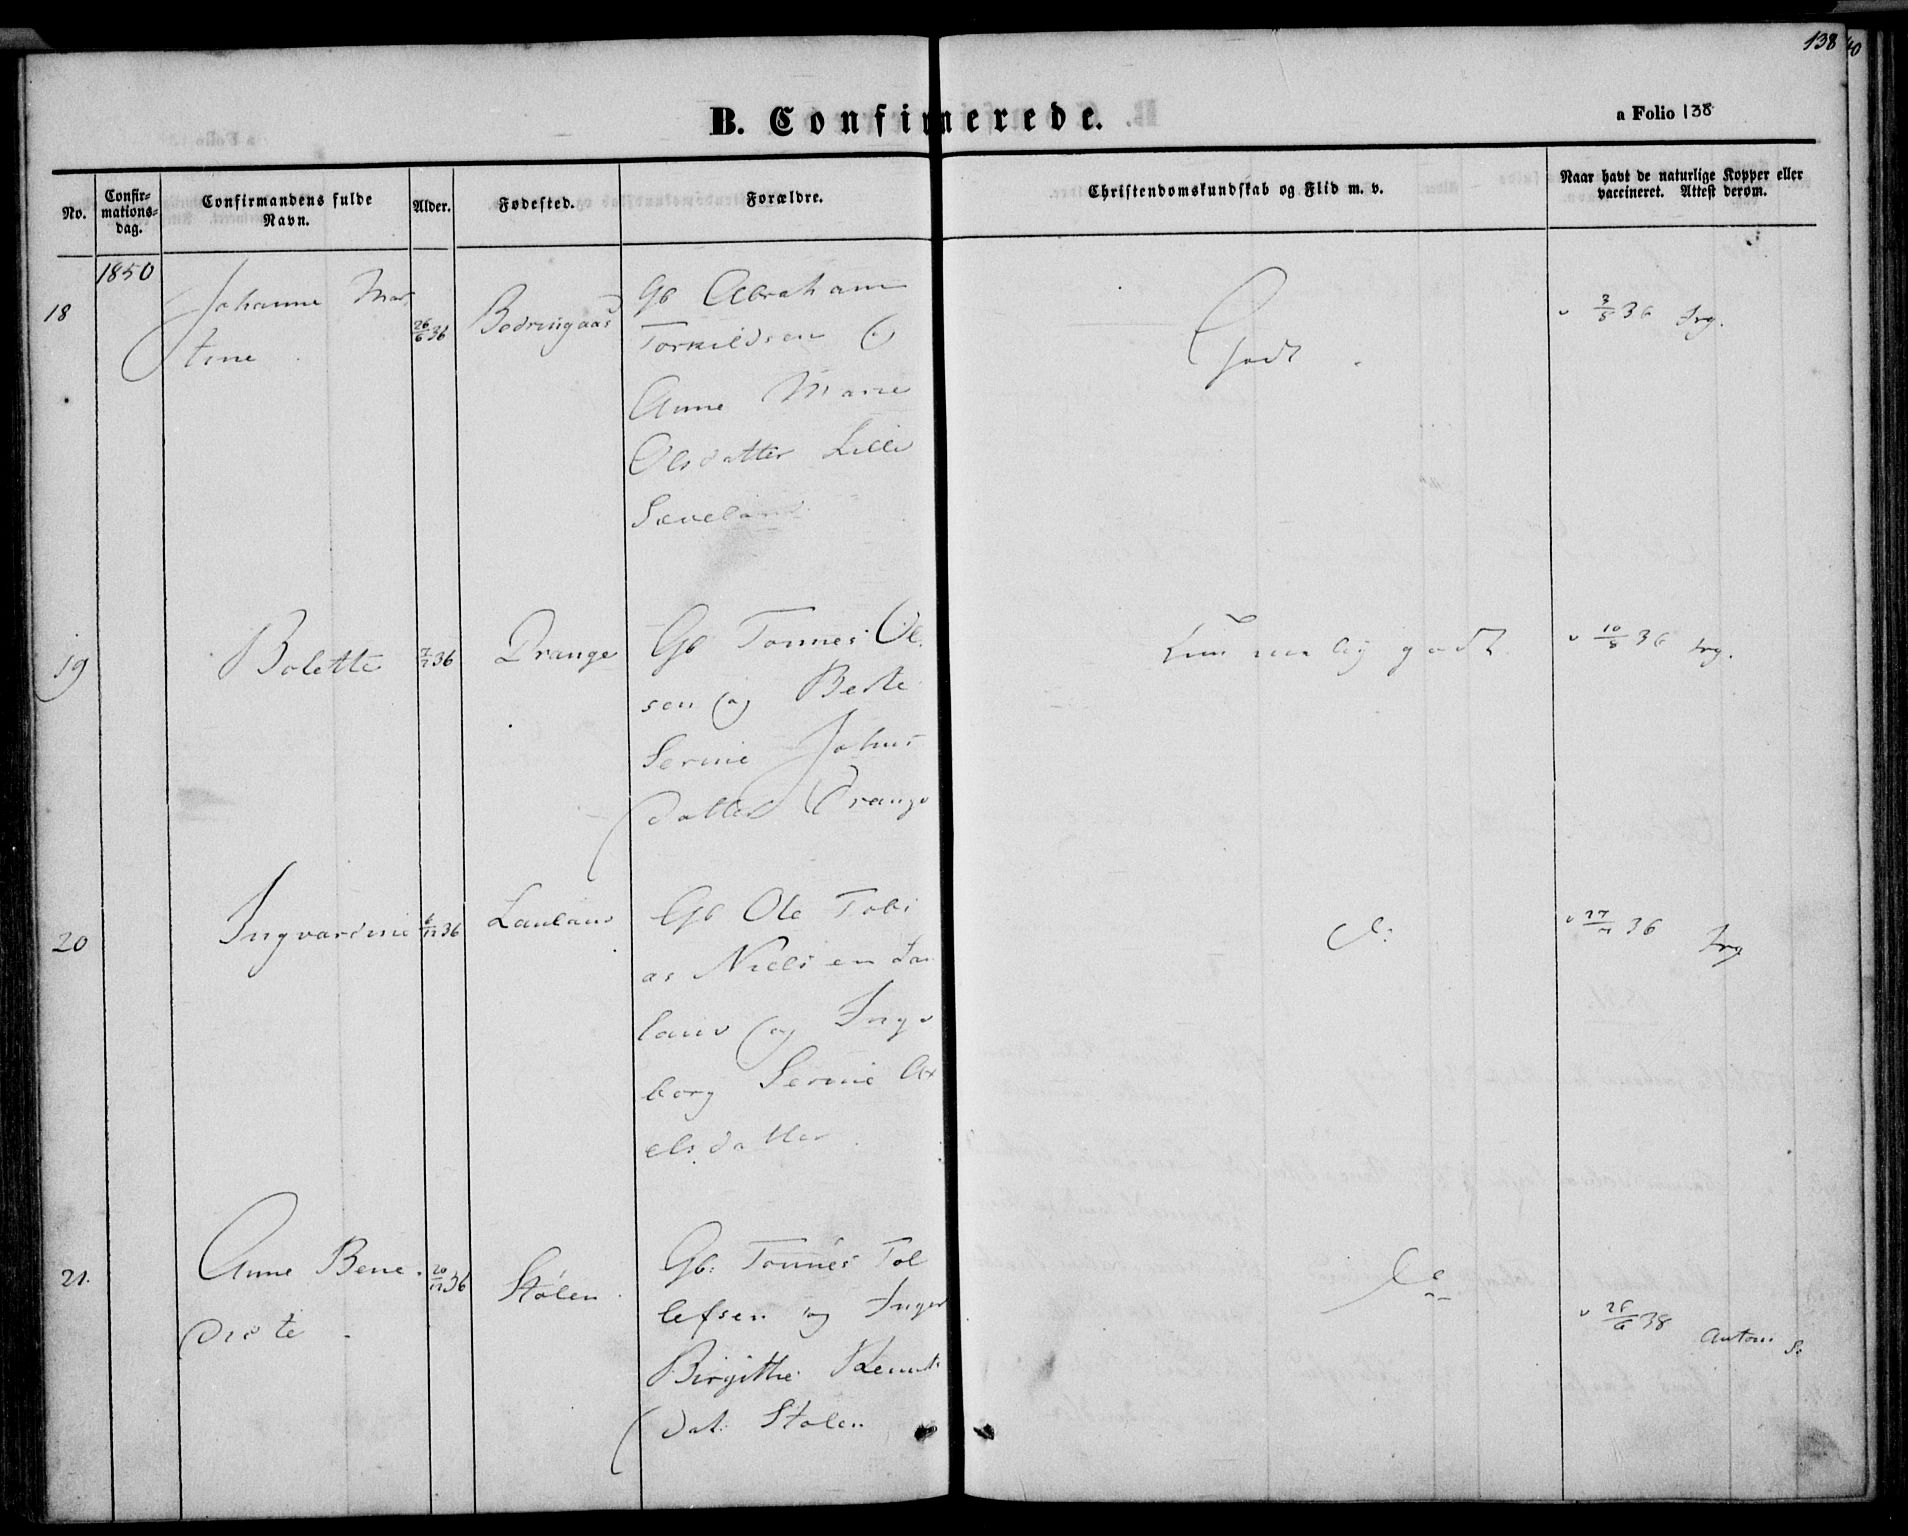 138
B. Confirmerede.
a Folio 138
No.
Confir-
mations-
dag.
Confirmandens fulde
Navn.
Alder.
Fødested.
Forældre.
Christendomskundskab og Flid m. v.
Naar havt de naturlige Kopper eller
vaccineret. Attest derom.
1850
18
Johanne Mar
tine
26/6 36
Gb Abraham
Torkildsen og
Anne Marie
Olsdatter Lille
Sæveland
Godt
v 3/8 36
19
Bolette
7/7 36
Drange
Gb Tønnes Ol
sen og Berte
Serine Johns
datter Drange
temmelig godt
v 10/8 36
20
Ingvardine
1/12 36
Lauland
Gb Ole Tobi
as Nielsen Lau
land og Inge
borg Serine Ax
elsdatter
d:
v 27/7 36
21.
Anne Bene
dicte
20/12 36
Stølen
Gb: Tønnes Tol
lefsen og Inger
Birgitte
dat: Stølen
do
v 26/6 38